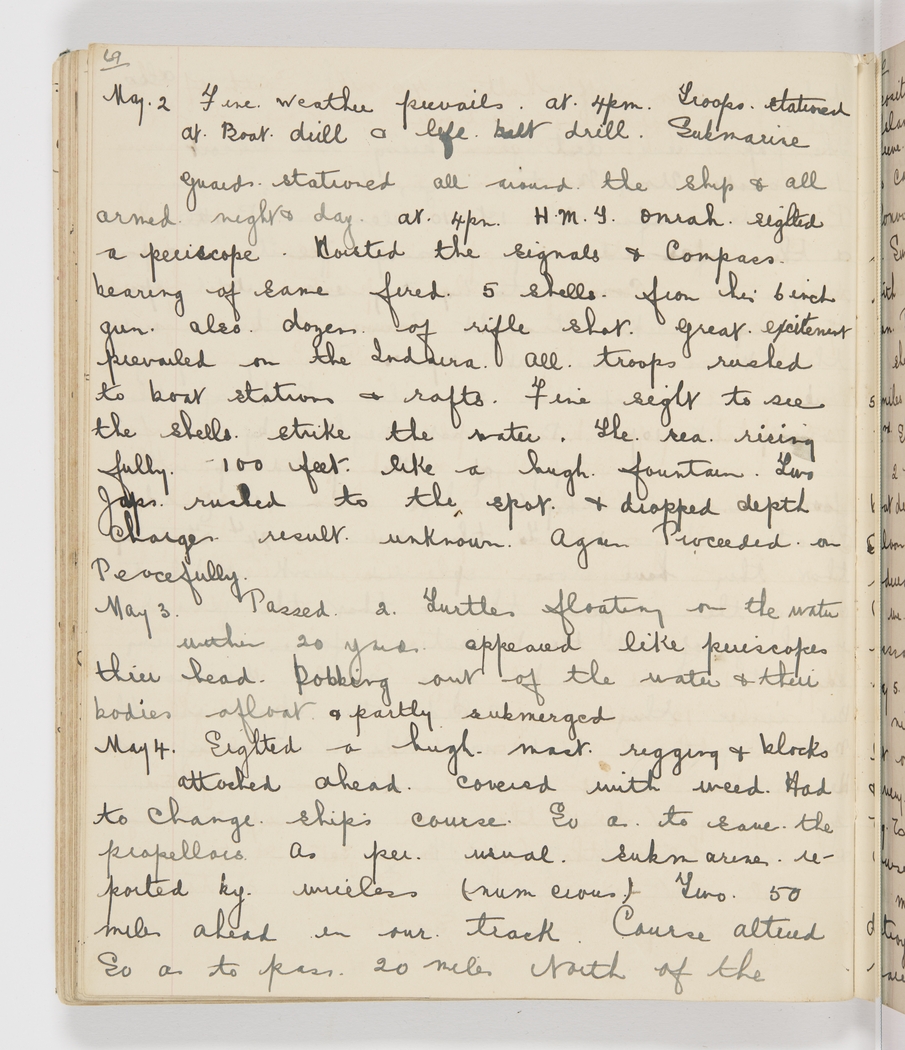 69
May. 2 Fine. weather prevails. at. 4pm. Troops. stationed
at. Boat. drill & life. belt drill. Submarine
guards. stationed all around. the ship & all
armed. night & day. at. 4pm. H.M.T. Omrah. sighted
a periscope. Hoisted the signals & Compass.
bearing of same fired. 5 shells. from her 6 inch
gun. also. dozens. of rifle shot. Great. excitement
prevailed on the Indarra. All. troops rushed
to boat stations & rafts. Fine sight to see
the shells. strike the water. The. sea. rising
fully. 100 feet. like a hugh. fountain. Two
Japs. rushed to the spot. & dropped depth
Charges. result. unknown. Again Proceeded. on
Peacefully.
May 3. Passed. 2. Turtles floating on the water
within 20 yrds. appeared like periscopes
thier head. Bobbing out of the water & their
bodies afloat & partly submerged
May 4. Sighted a hugh. mast. rigging & blocks
attached ahead. covered with weed. Had
to Change. ships course. So as. to save. the
propellors. As per. usual. submarines. re-
ported by. wireless (numerous) Two. 50
miles ahead in our. track. Course altered
So as to pass. 20 miles North of the